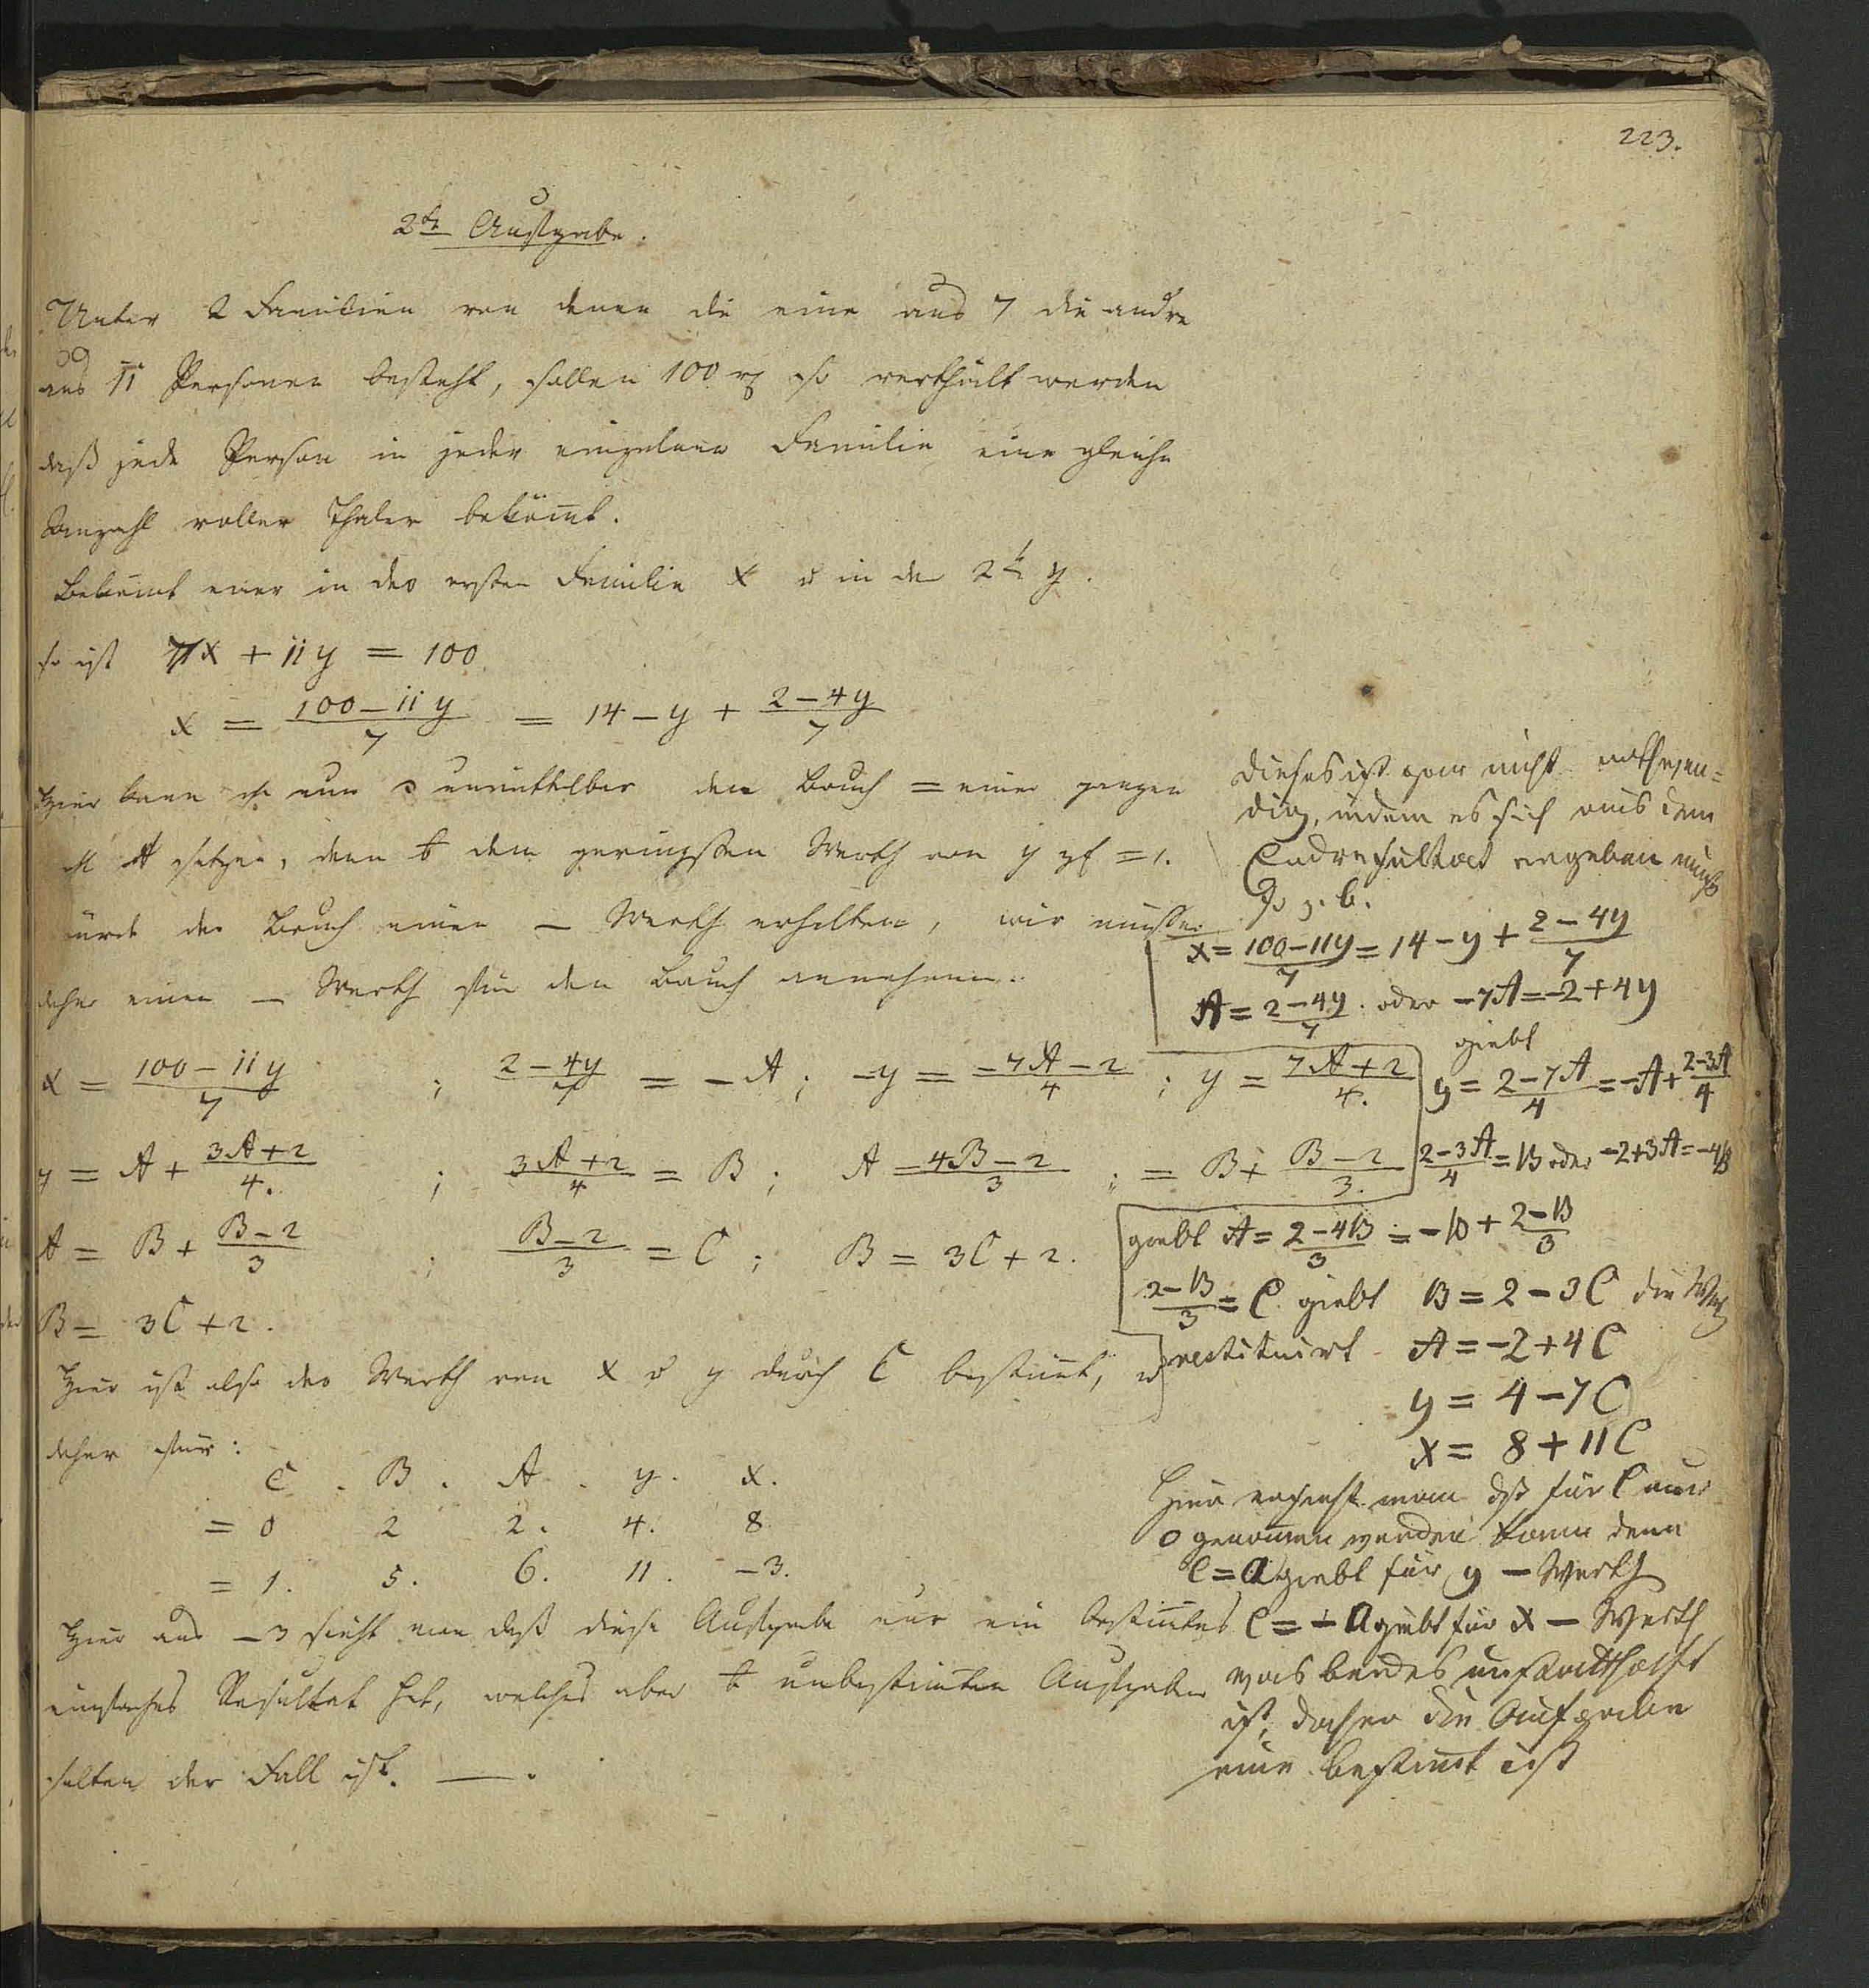 223.
2te Aufgabe.
Unter 2 Familien von denen die eine aus 7 die andre
aus 11 Personen besteht, sollen 100 rℓ so vertheilt werden
daß jede Person in jeder einzelnen Familie eine gleiche
Anzahl voller Thaler bekömt.
Bekömt einer in der ersten Familie x u in der 2t y.
so ist 7x + 11y = 100
x = (100 − 11y)/7 = 14 − y + (2 − 4y)/7
Hier kann ich nun unmittelbar den Bruch = einer ganzen
A setzen, denn den geringsten Werth von y = 1.
würde der Bruch einen − Werth erhalten, wir müssen
daher einen − Werth für den Bruch annehmen.
x = (100 − 11y)/7 ; (2 − 4y)/7 = −A ; −y = (−7A − 2)/4 ; y = (7A + 2)/4.
y = A + (3A + 2)/4. ; (3A + 2)/4 = B ; A = (4B − 2)/3 ; = B + (B − 2)/3.
A = B + (B − 2)/3 ; (B − 2)/3 = C ; B = 3C + 2.
B = 3C + 2.
Hier ist also der Werth von x u y durch C bestimt, u
daher für:
C . B . A . y . x.
= 0 2 2. 4. 8.
= 1. 5. 6. 11. −3.
Hier aus −3 sieht man daß diese Aufgabe nur ein bestimtes
einfaches Resultat hat, welches aber unbestimten Aufgaben
selten der Fall ist. —.
Dieses ist gar nicht nothwen=
dig, indem es sich aus dem
Endresultat ergeben muß
So z. b.
x = (100 − 11y)/7 = 14 − y + (2 − 4y)/7
A = (2 − 4y)/7. oder −7A = −2 + 4y
giebt
y = (2 − 7A)/4 = −A + (2 − 3A)/4
(2 − 3A)/4 = B oder −2 + 3A = −4B
giebt A = (2 − 4B)/3 = −B + (2 − B)/3
(2 − B)/3 = C giebt B = 2 − 3C die Werth
restituirt A = −2 + 4C
y = 4 − 7C
x = 8 + 11C
Hier ersieht man daß für C nur
0 genommen werden kann denn
C = a giebt für y − Werth
C = −a giebt für x − Werth
was beides unstatthaft
ist, daher die Aufgabe
eine bestimt ist